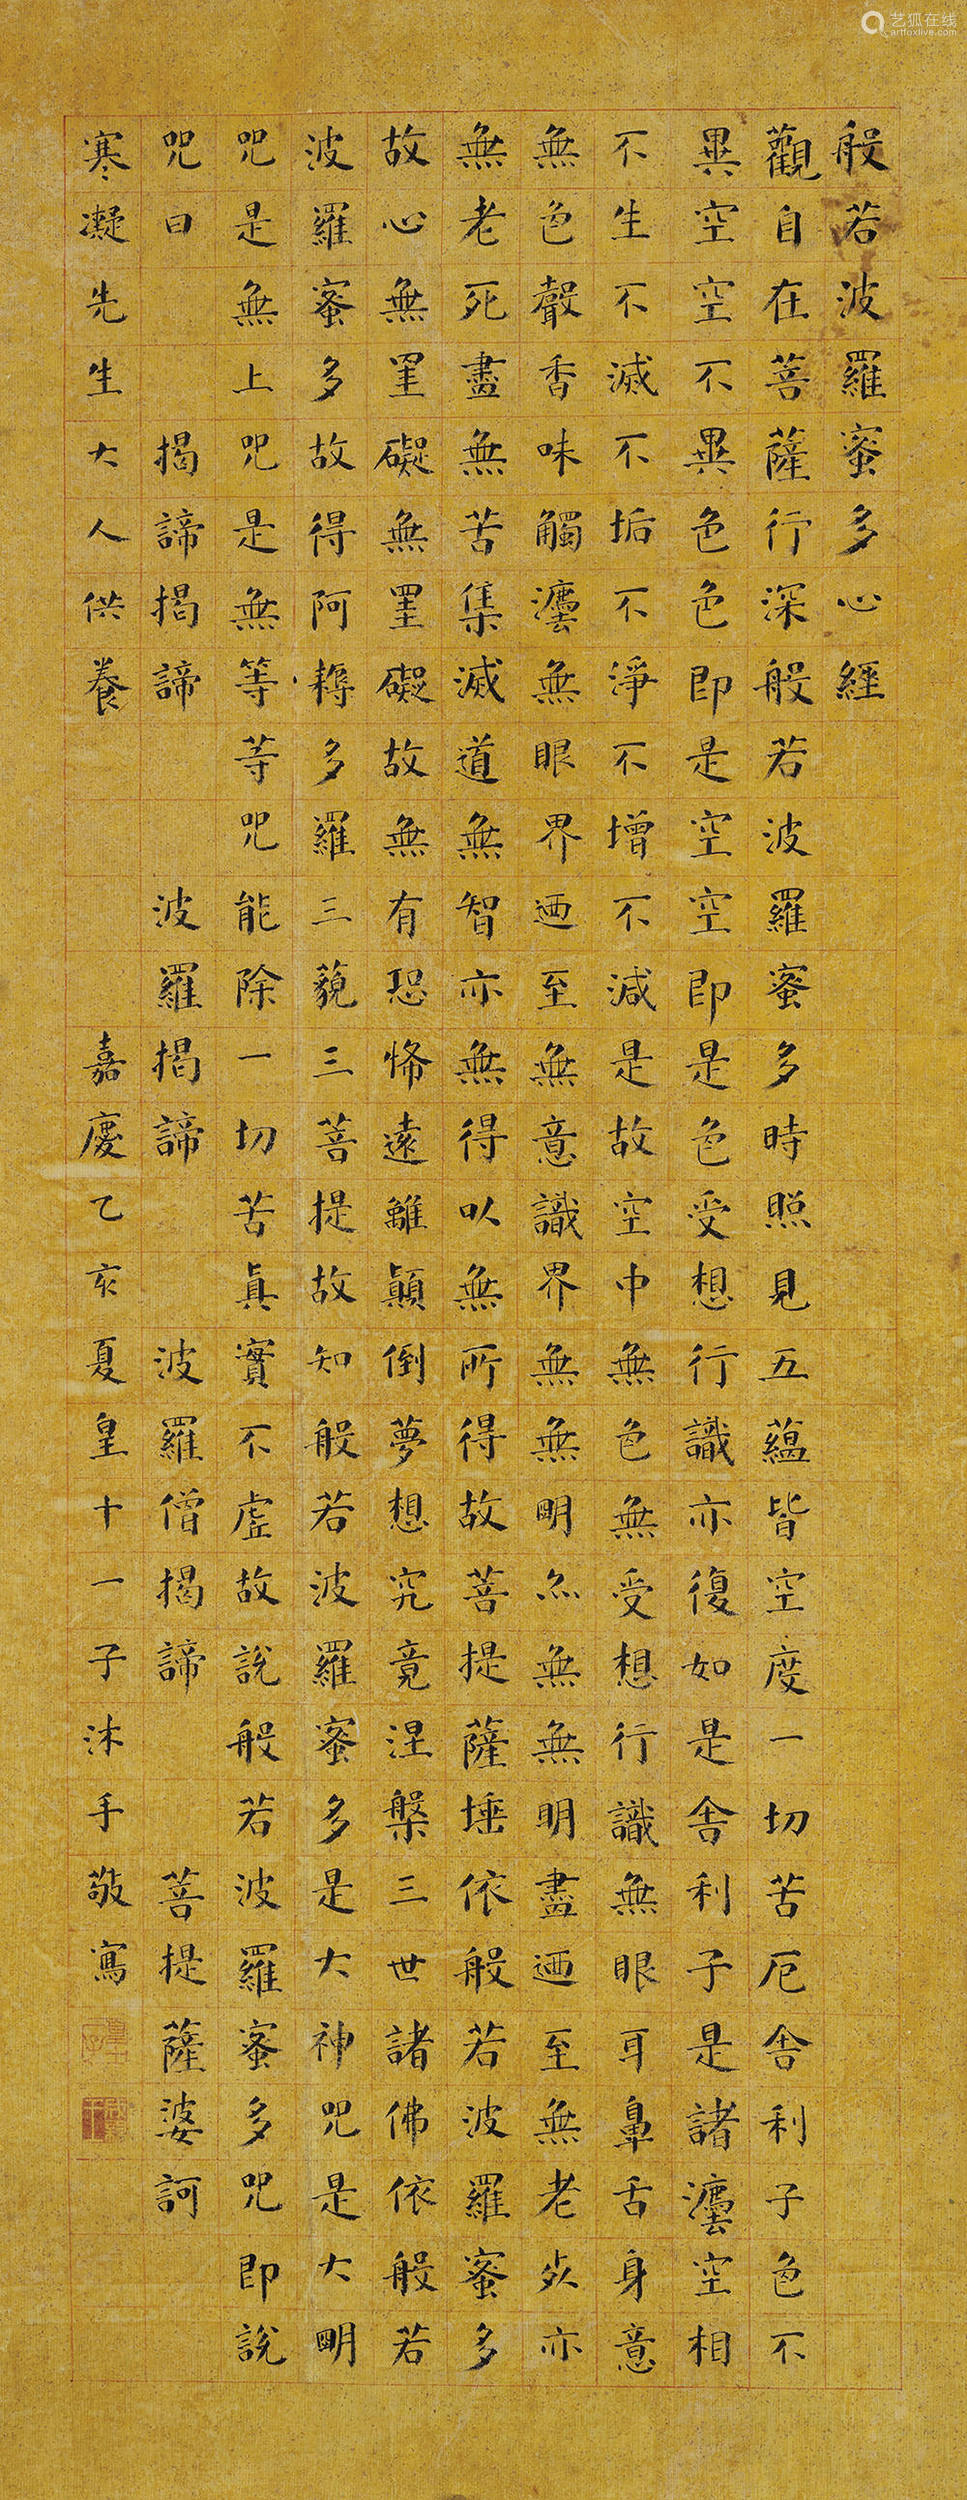 般若波羅蜜多心經
觀自在菩薩行深般若波羅蜜多時照見五蘊皆空度一切苦厄舍利子色不
異空空不異色色即是空空即是色受想行識亦復如是舍利子是諸灋空相
不生不滅不垢不淨不增不減是故空中無色無受想行識無眼耳鼻舌身意
無色聲香味觸灋無眼界迺至無意識界無無明亦無無明盡迺至無老死亦
無老死盡無苦集滅道無智亦無得以無所得故菩提薩埵依般若波羅蜜多
故心無罣礙無罣礙故無有恐怖遠離顛倒夢想究竟涅槃三世諸佛依般若
波羅蜜多故得阿耨多羅三藐三菩提故知般若波羅蜜多是大神咒是大明
咒是無上咒是無等等咒能除一切苦真實不虛故說般若波羅蜜多咒即說
咒曰 揭諦揭諦 波羅揭諦 波羅僧揭諦 菩提薩婆訶
寒凝先生大人供養 嘉慶乙亥夏皇十一子沐手敬寫
艺狐在线
artfoxlive.com